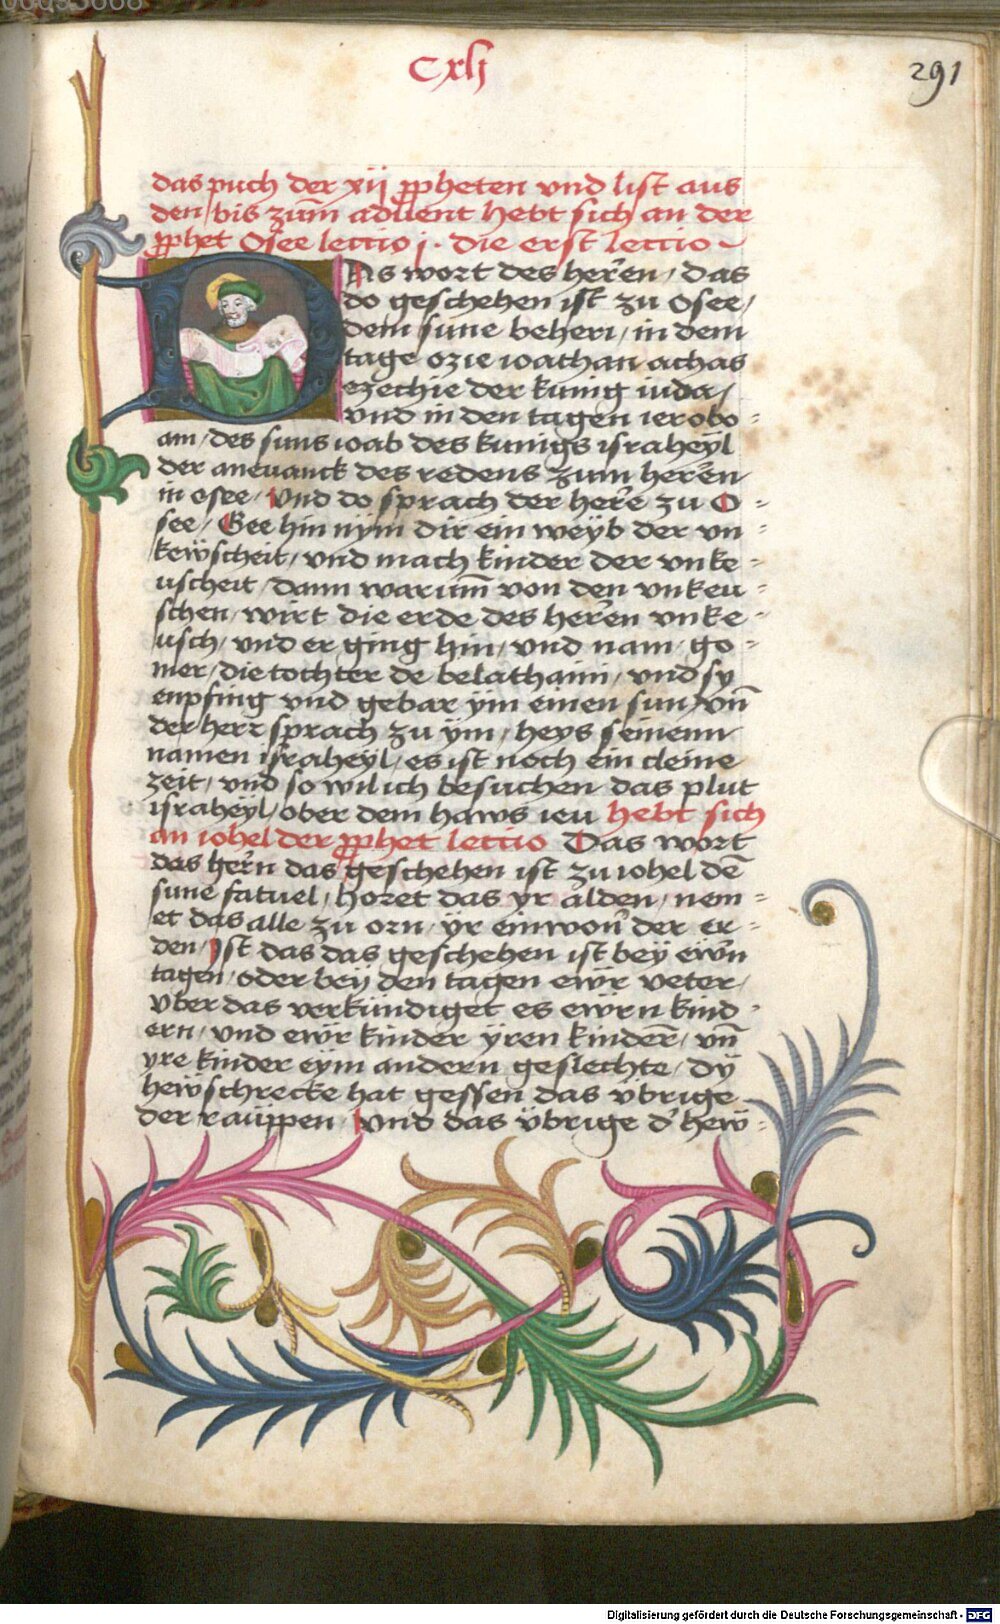 Cxlj
291
das puch der xij ꝓpheten vnd list aus
den bis zum̄ aduent hebt sich an der
ꝓphet Osee lectio j. die erst lectio
Das wort des herren / das
do geschehen ist zu Osee /
dem sune beheri / in dem
tage ozie ioathan achas
ezechie der kunig iuda /
vnd in den tagen ierobo =
am / des suns ioab des kunigs israheyl
der anevanck des redens zum herren
in osee / Vnd do sprach der here zu O =
see / Gee hin nÿm dir ein weÿb der vn =
kewscheit / vnd mach kinder der vnke =
uscheit / dann warum̄ von den vnkeu =
schen / wirt die erde des herren vnke =
usch / vnd er ging hin / vnd nam / go =
mer / die tochter de belathaim / vnd sy
enpfing vnd gebar ÿm einen sun / vn̄
der herr sprach zu ÿm / heys seinenn
namen israheÿl / es ist noch ein cleine
zeit / vnd so wil ich besuchen das plut
israheÿl / ober dem haws ieu hebt sich
an iohel der ꝓphet lectio Das wort
des hern das geschehen ist zu iohel dē
sune fatuel / horet das yr alden / nem =
et das alle zu orn / ÿr einwon̄ der er =
den / Ist das das geschehen ist bey ewrn
tagen / oder beÿ den tagen ewr veter /
vber das verkündiget es ewrn kind =
ern / vnd ewr kinder ÿren kindern / vn̄
yre kinder eÿm andern geslechte / dÿ
hewschrecke hat gessen das vbrige
der raüppen / Vnd das übrige d' hew =
Digitalisierung gefördert durch die Deutsche Forschungsgemeinschaft - DFG